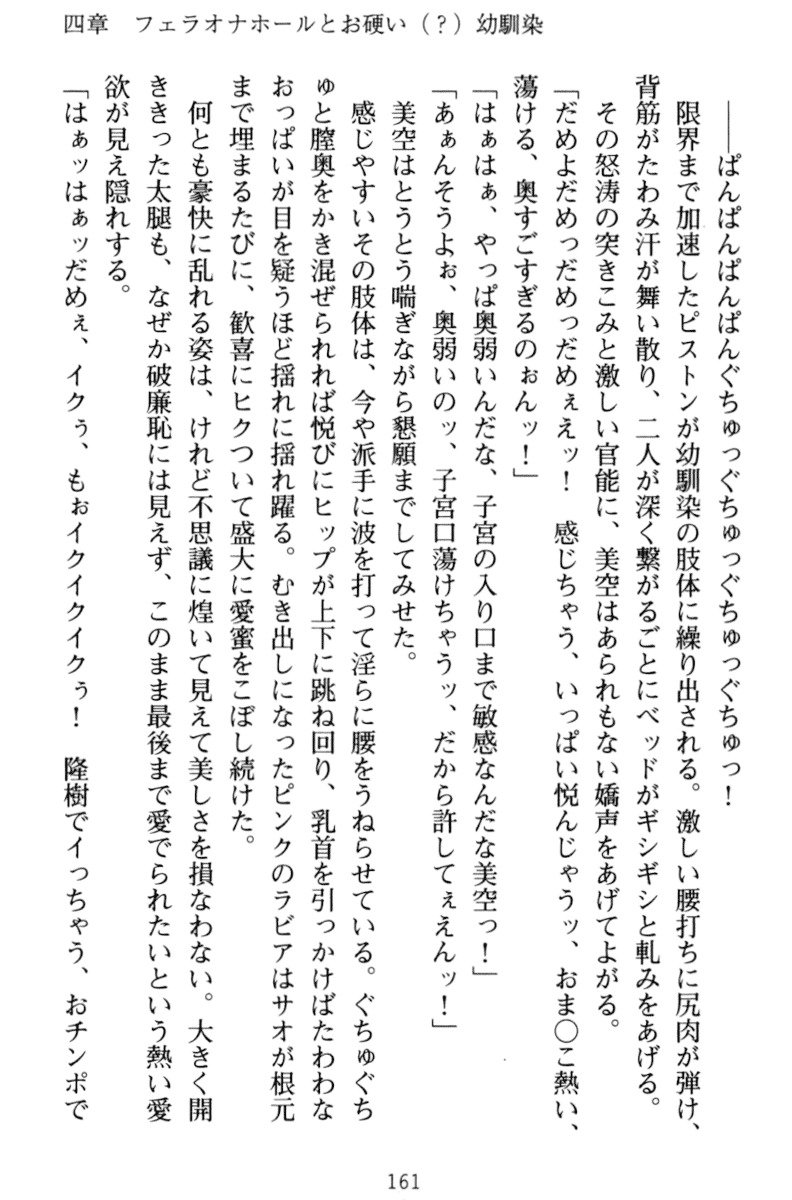 四章　フェラオナホールとお硬い（？）幼馴染
――ぱんぱんぱんぱんぐちゅっぐちゅっぐちゅっぐちゅっ！
限界まで加速したピストンが幼馴染の肢体に繰り出される。激しい腰打ちに尻肉が弾け、
背筋がたわみ汗が舞い散り、二人が深く繋がるごとにベッドがギシギシと軋みをあげる。
その怒涛の突きこみと激しい官能に、美空はあられもない嬌声をあげてよがる。
「だめよだめっだめっだめぇえッ！　感じちゃう、いっぱい悦んじゃうッ、おま〇こ熱い、
蕩ける、奥すごすぎるのぉんッ！」
「はぁはぁ、やっぱ奥弱いんだな、子宮の入り口まで敏感なんだな美空っ！」
「あぁんそうよぉ、奥弱いのッ、子宮口蕩けちゃうッ、だから許してぇえんッ！」
美空はとうとう喘ぎながら懇願までしてみせた。
感じやすいその肢体は、今や派手に波を打って淫らに腰をうねらせている。ぐちゅぐち
ゅと膣奥をかき混ぜられれば悦びにヒップが上下に跳ね回り、乳首を引っかけばたわわな
おっぱいが目を疑うほど揺れに揺れ躍る。むき出しになったピンクのラビアはサオが根元
まで埋まるたびに、歓喜にヒクついて盛大に愛蜜をこぼし続けた。
何とも豪快に乱れる姿は、けれど不思議に煌いて見えて美しさを損なわない。大きく開
ききった太腿も、なぜか破廉恥には見えず、このまま最後まで愛でられたいという熱い愛
欲が見え隠れする。
「はぁッはぁッだめぇ、イクぅ、もぉイクイクイクぅ！　隆樹でイっちゃう、おチンポで
161